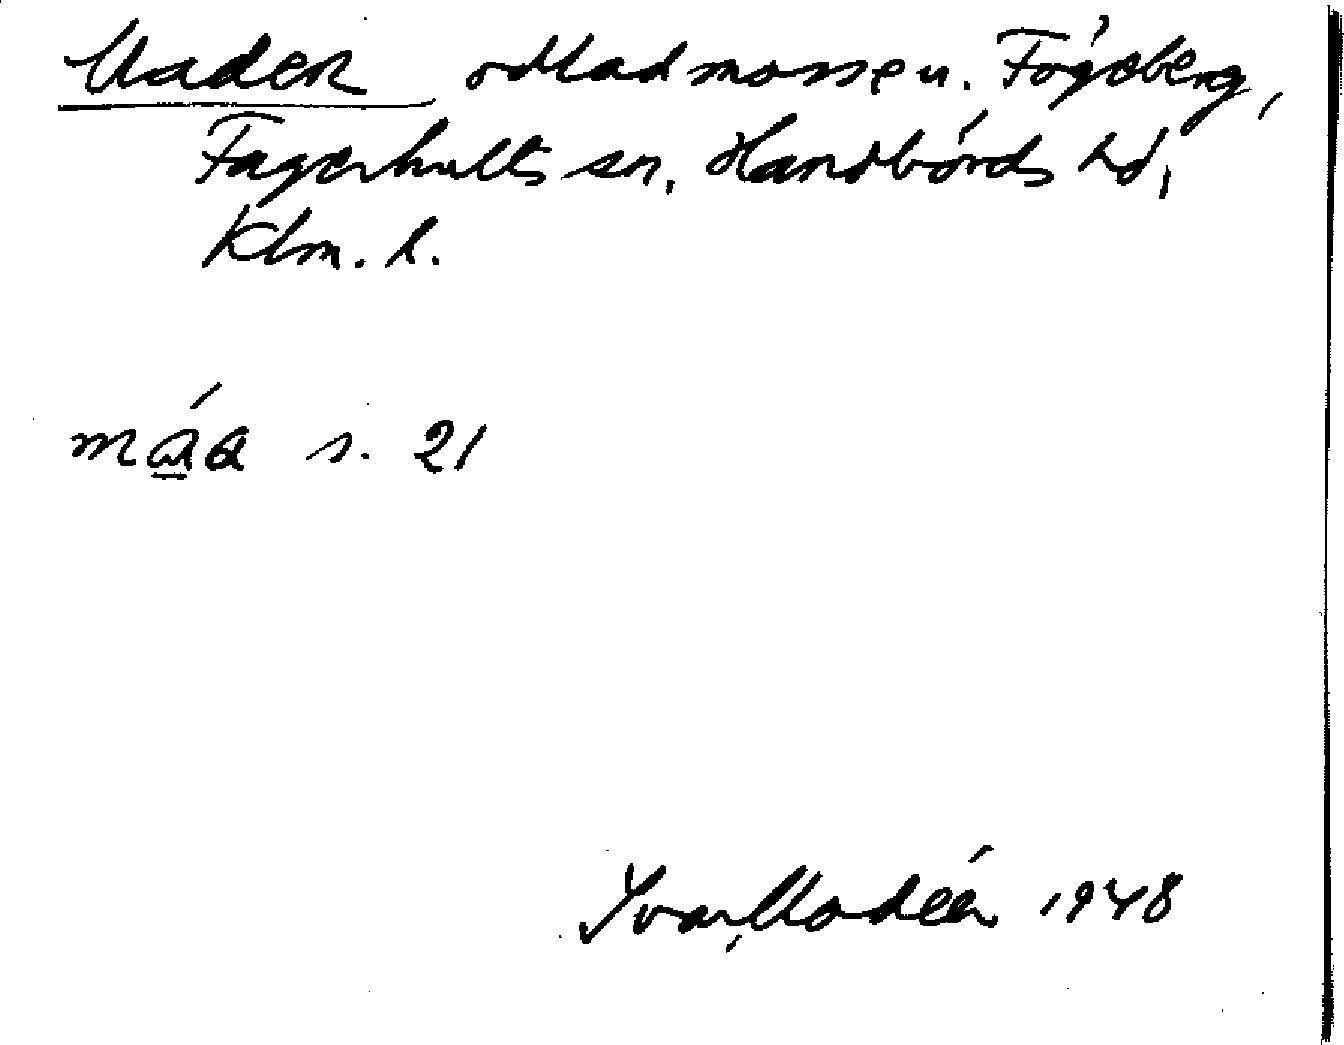 Maden odlad mosse u. Fögeberg,
Fagerhults sn, Handbörds hd,
Klm. l.
s. 21
Ivar Modéer 1948